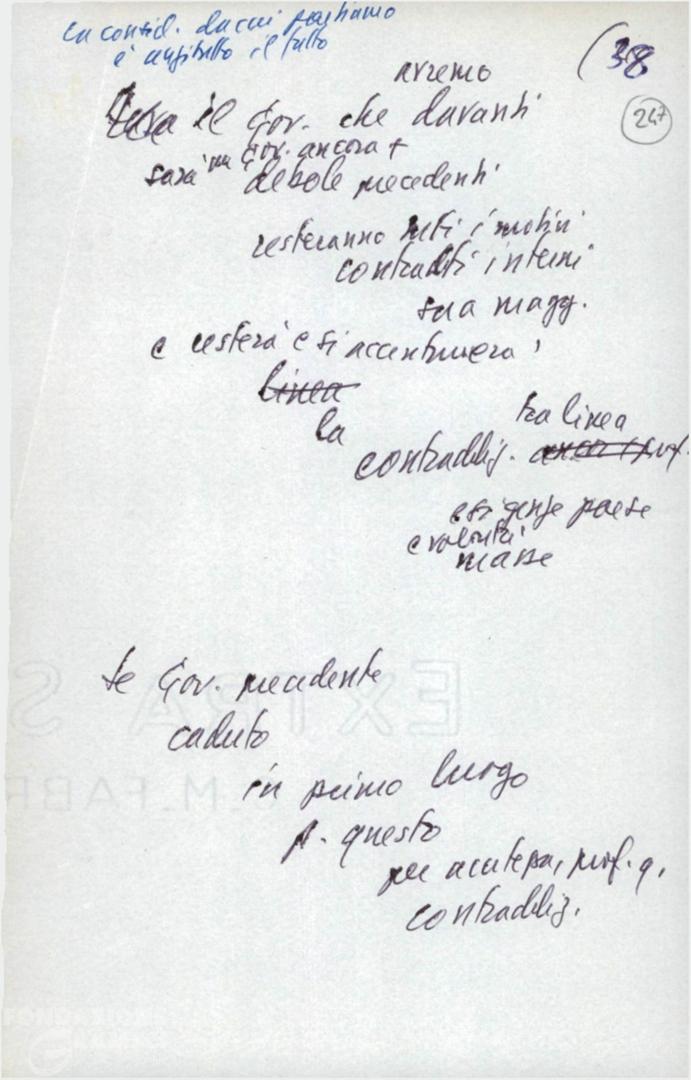 La consid. da cui partiamo
è anzitutto il fatto
(38
247
avremo
il Gov. che davanti
sarà un Gov. ancora +
debole precedenti
resteranno tutti i motivi
contradditi interni
sua magg.
e resterà e si accentuerà
linea
la
tra linea
contraddiz.
esigenze paese
e volontà
masse
se Gov. precedente
caduto
in primo luogo
p. questo
per acutezza, prof. q.
contraddiz.
EXTRA S
M. FABR